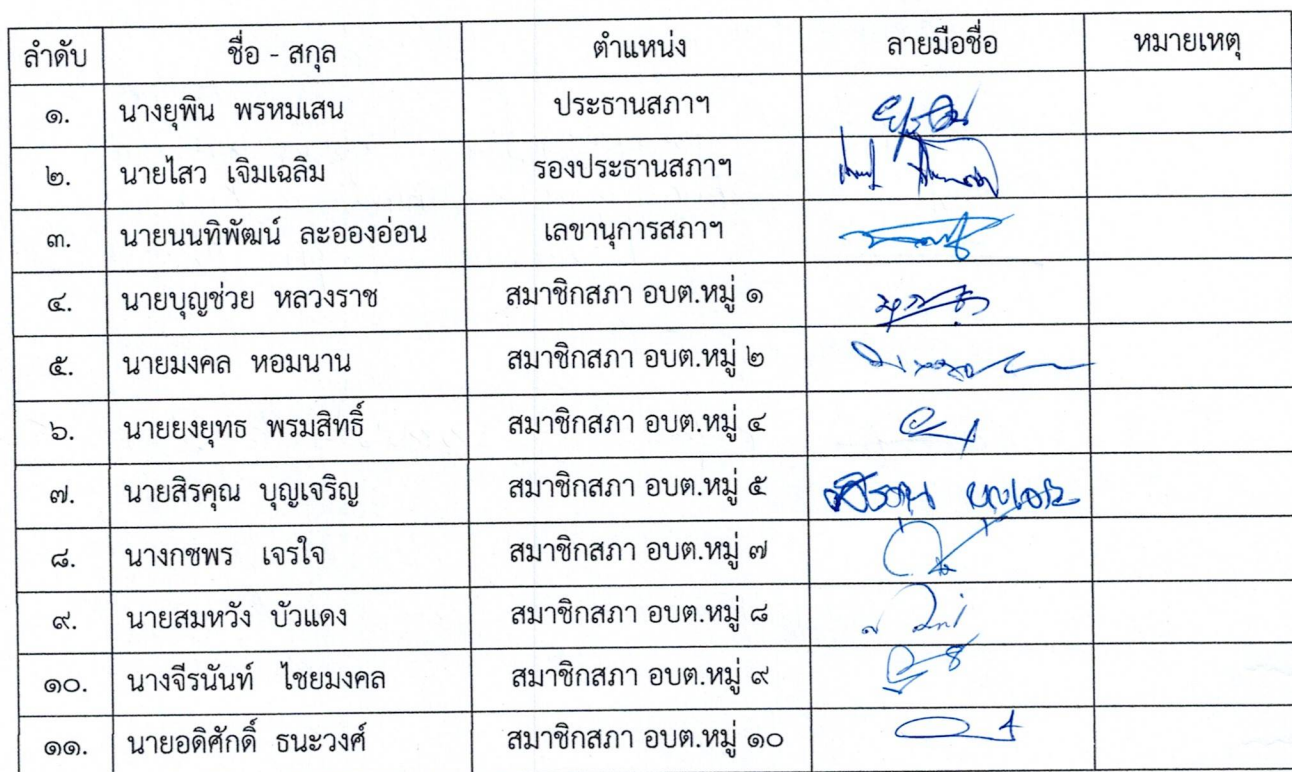 ลำดับ ชื่อ - สกุล ตำแหน่ง ลายมือชื่อ หมายเหตุ
๑. นางยุพิน พรหมเสน ประธานสภาฯ
๒. นายไสว เจิมเฉลิม รองประธานสภาฯ
๓. นายนนทิพัฒน์ ละอองอ่อน เลขานุการสภาฯ
๔. นายบุญช่วย หลวงราช สมาชิกสภา อบต.หมู่ ๑
๕. นายมงคล หอมนาน สมาชิกสภา อบต.หมู่ ๒
๖. นายยงยุทธ พรมสิทธิ์ สมาชิกสภา อบต.หมู่ ๔
๗. นายสิรคุณ บุญเจริญ สมาชิกสภา อบต.หมู่ ๕
๘. นางกชพร เจรใจ สมาชิกสภา อบต.หมู่ ๗
๙. นายสมหวัง บัวแดง สมาชิกสภา อบต.หมู่ ๘
๑๐. นางจีรนันท์ ไชยมงคล สมาชิกสภา อบต.หมู่ ๙
๑๑. นายอดิศักดิ์ ธนะวงศ์ สมาชิกสภา อบต.หมู่ ๑๐